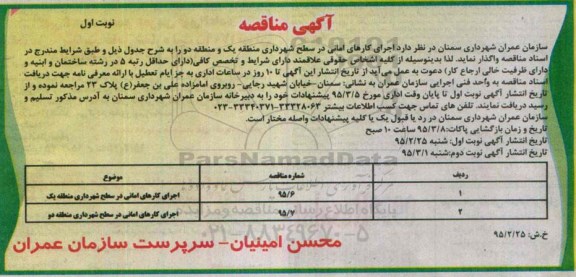 آگهی مناقصه
نوبت اول
سازمان عمران شهرداری سمنان در نظر دارد اجرای کارهای امانی در سطح شهرداری منطقه یک و منطقه دو را به شرح جدول ذیل و طبق شرایط مندرج در
اسناد مناقصه واگذار نماید. لذا بدینوسیله از کلیه اشخاص حقوقی علاقمند دارای شرایط و تخصص کافی(دارای حداقل رتبه ۵ در رشته ساختمان و ابنیه و
دارای ظرفیت خالی ارجاع کار) دعوت به عمل می‌آید از تاریخ انتشار این آگهی تا ۱۰ روز در ساعات اداری به جز ایام تعطیل با ارائه معرفی نامه جهت دریافت
اسناد مناقصه به واحد فنی اجرایی سازمان عمران به نشانی: سمنان -خیابان شهید رجایی- روبروی امامزاده علی بن جعفر(ع) پلاک ۲۳ مراجعه نموده و از
تاریخ انتشار آگهی نوبت اول تا پایان وقت اداری مورخ ۹۵/۳/۵ پیشنهادات خود را به دبیرخانه سازمان عمران شهرداری سمنان به آدرس مذکور تسلیم و
رسید دریافت نمایند. تلفن های تماس جهت کسب اطلاعات بیشتر ۳۳۳۲۸۰۶۳-۳۳۳۴۰۳۷۱-۰۲۳
سازمان عمران شهرداری سمنان در رد یا قبول یک یا کلیه پیشنهادات واصله مختار است.
تاریخ و زمان بازگشایی پاکات: ۹۵/۳/۸ ساعت ۱۰ صبح
تاریخ انتشار آگهی نوبت اول: شنبه ۹۵/۲/۲۵
تاریخ انتشار آگهی نوبت دوم:شنبه ۹۵/۳/۱
ParsNamadData
ردیف شماره مناقصه موضوع
۱ ۹۵/۶ اجرای کارهای امانی در سطح شهرداری منطقه یک
۲ ۹۵/۷ اجرای کارهای امانی در سطح شهرداری منطقه دو
۰۲۱-۸۸۳۴۹۶۷۰-۵
خ.ش: ۹۵/۲/۲۵
محسن امینیان- سرپرست سازمان عمران